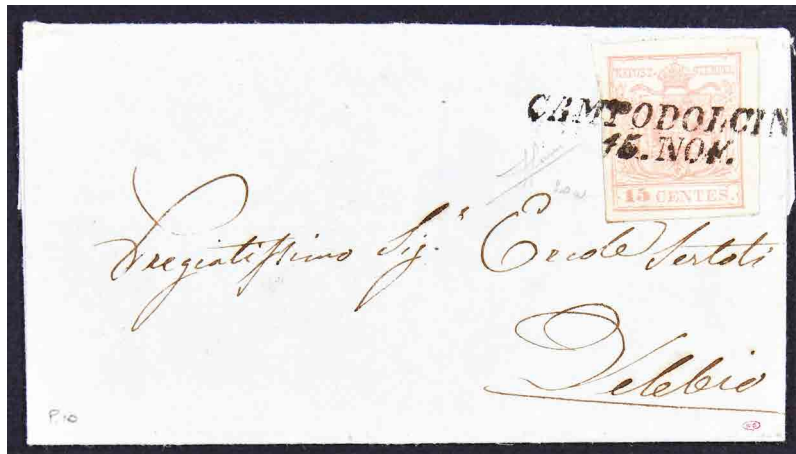 KKPOST-STEMPEL
CAMPODOLCIN
15. NOV.
15 CENTES.
Pregiatissimo Sig.r Ercole Sertoli
Debbio
P. 10